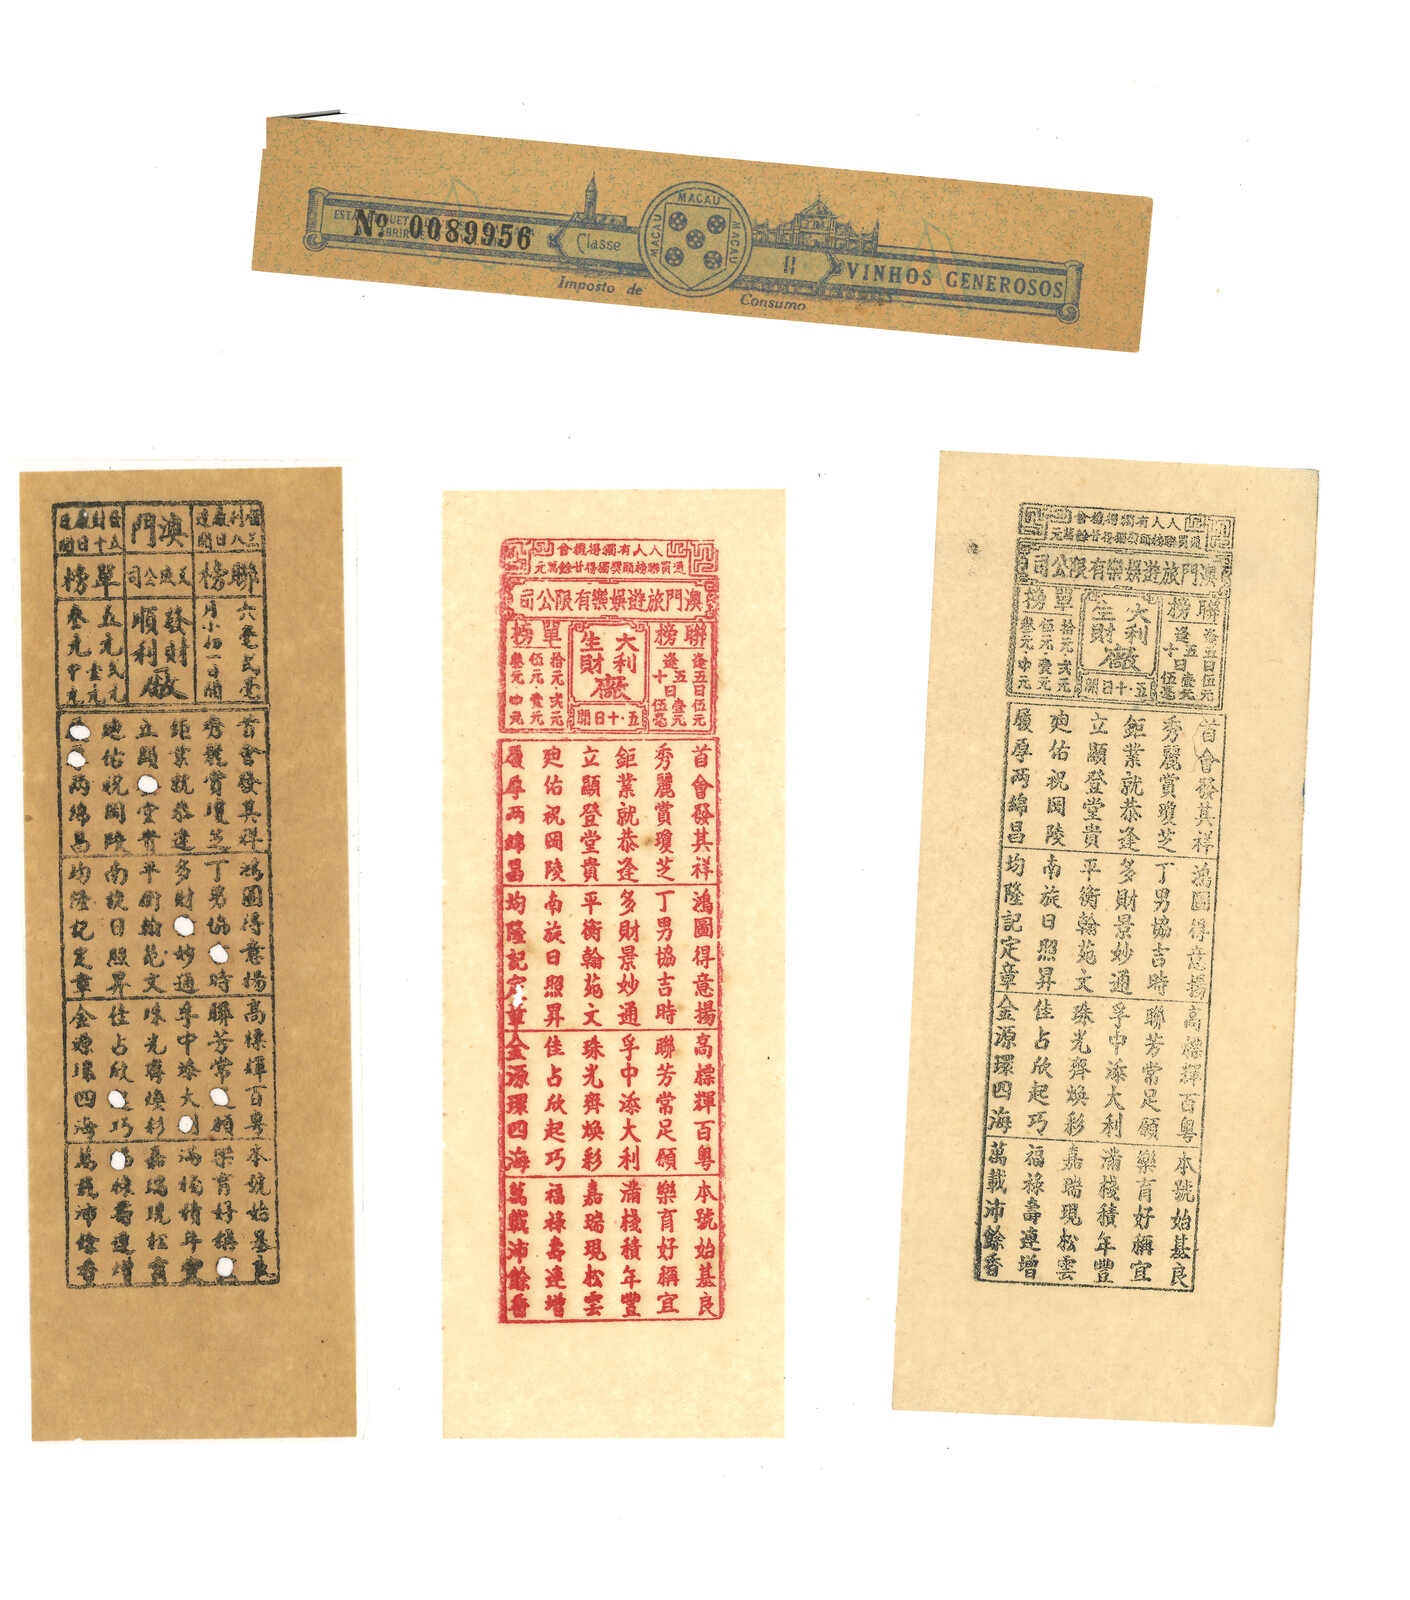 Nº 0089956
Classe
MACAU
MACAU
MACAU
II
VINHOS GENEROSOS
Imposto de
Consumo
澳門
聯榜
公司
單榜
六毫弍毫
發財
順利
廠
五元弍元
首會發其祥
秀麗賞瓊芝
鉅業就恭逢
立顯堂貴
廸佑祝岡陵
兩綿昌
鴻圖得意揚
丁男協時
多財妙通
平衡翰苑文
南旋日照昇
均隆記定章
高標輝百粵
聯芳常願
孚中添大利
珠光齊煥彩
佳占欣巧
金源環四海
本號始基良
樂育好稱
滿棧積年豐
嘉瑞現松雲
福祿壽連增
萬載沛餘香
人人有獨得機會
通買聯榜頭獎獨得廿餘萬元
澳門旅遊娛樂有限公司
聯榜
逢五日伍元壹元
逢五十日伍毫
大利
生財
廠
五·十日開
單榜
拾元·弍元
伍元·壹元
叁元·中元
首會發其祥
秀麗賞瓊芝
鉅業就恭逢
立顯登堂貴
廸佑祝岡陵
履厚兩綿昌
鴻圖得意揚
丁男協吉時
多財景妙通
平衡翰苑文
南旋日照昇
均隆記定章
高標輝百粵
聯芳常足願
孚中添大利
珠光齊煥彩
佳占欣起巧
金源環四海
本號始基良
樂育好稱宜
滿棧積年豐
嘉瑞現松雲
福祿壽連增
萬載沛餘香
人人有獨得機會
通買聯榜頭獎獨得廿餘萬元
澳門旅遊娛樂有限公司
聯榜
逢五日伍元壹元
逢五十日伍毫
大利
生財
廠
五·十日開
單榜
拾元·弍元
伍元·壹元
叁元·中元
首會發其祥
秀麗賞瓊芝
鉅業就恭逢
立顯登堂貴
廸佑祝岡陵
履厚兩綿昌
鴻圖得意揚
丁男協吉時
多財景妙通
平衡翰苑文
南旋日照昇
均隆記定章
高標輝百粵
聯芳常足願
孚中添大利
珠光齊煥彩
佳占欣起巧
金源環四海
本號始基良
樂育好稱宜
滿棧積年豐
嘉瑞現松雲
福祿壽連增
萬載沛餘香